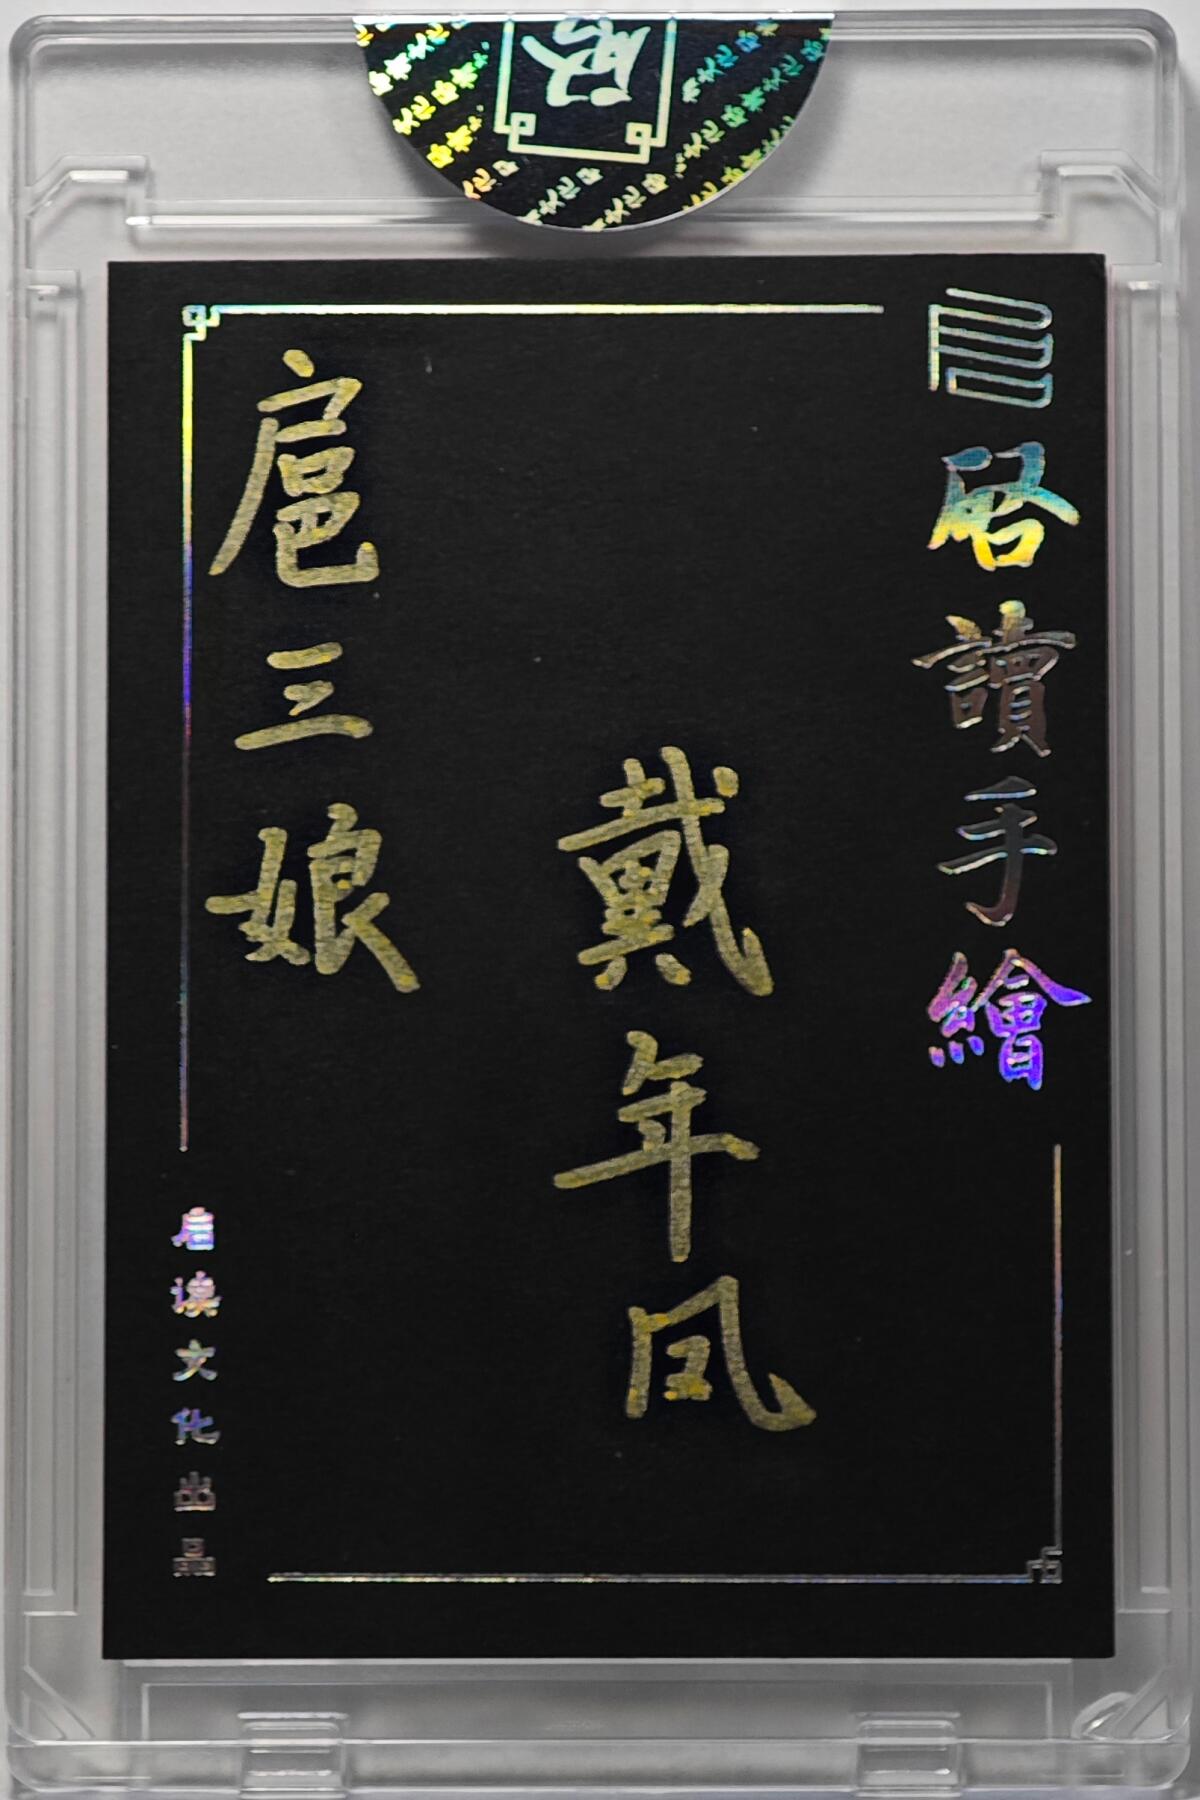 启讀手繪
戴年凤
扈三娘
启读文化出品